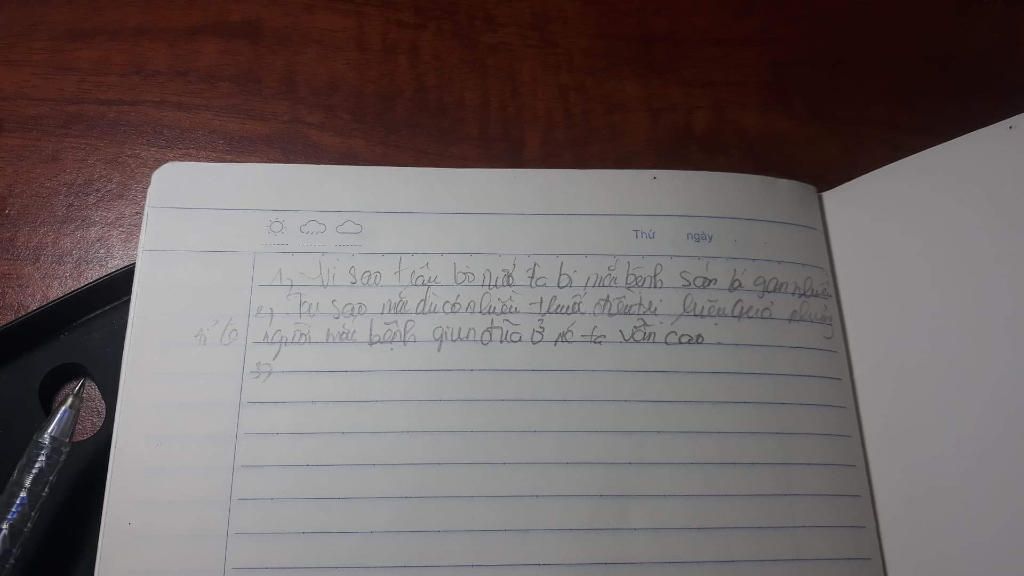 Thứ ngày
1, Vì sao trâu bò nước ta bị mắc bệnh sán lá gan nhiều
2, Tại sao mặc dù có nhiều thuốc điều trị hiệu quả nhưng
tỉ lệ người mắc bệnh giun đũa ở nc ta vẫn cao
3,